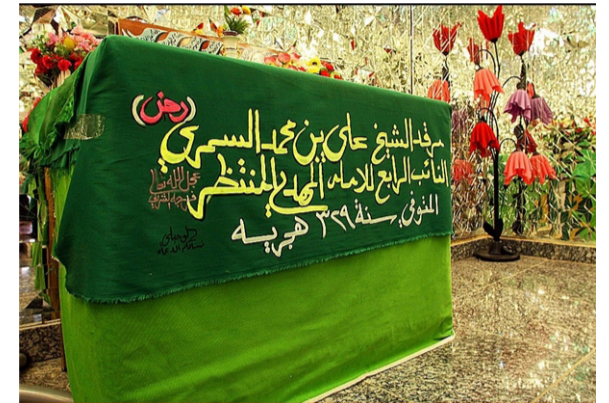 (رض)
مرقد الشيخ علي بن محمد السمري
النائب الرابع للامام المهدي المنتظر
عجل الله تعالى
فرجه الشريف
المتوفي سنة ٣٢٩ هجريه